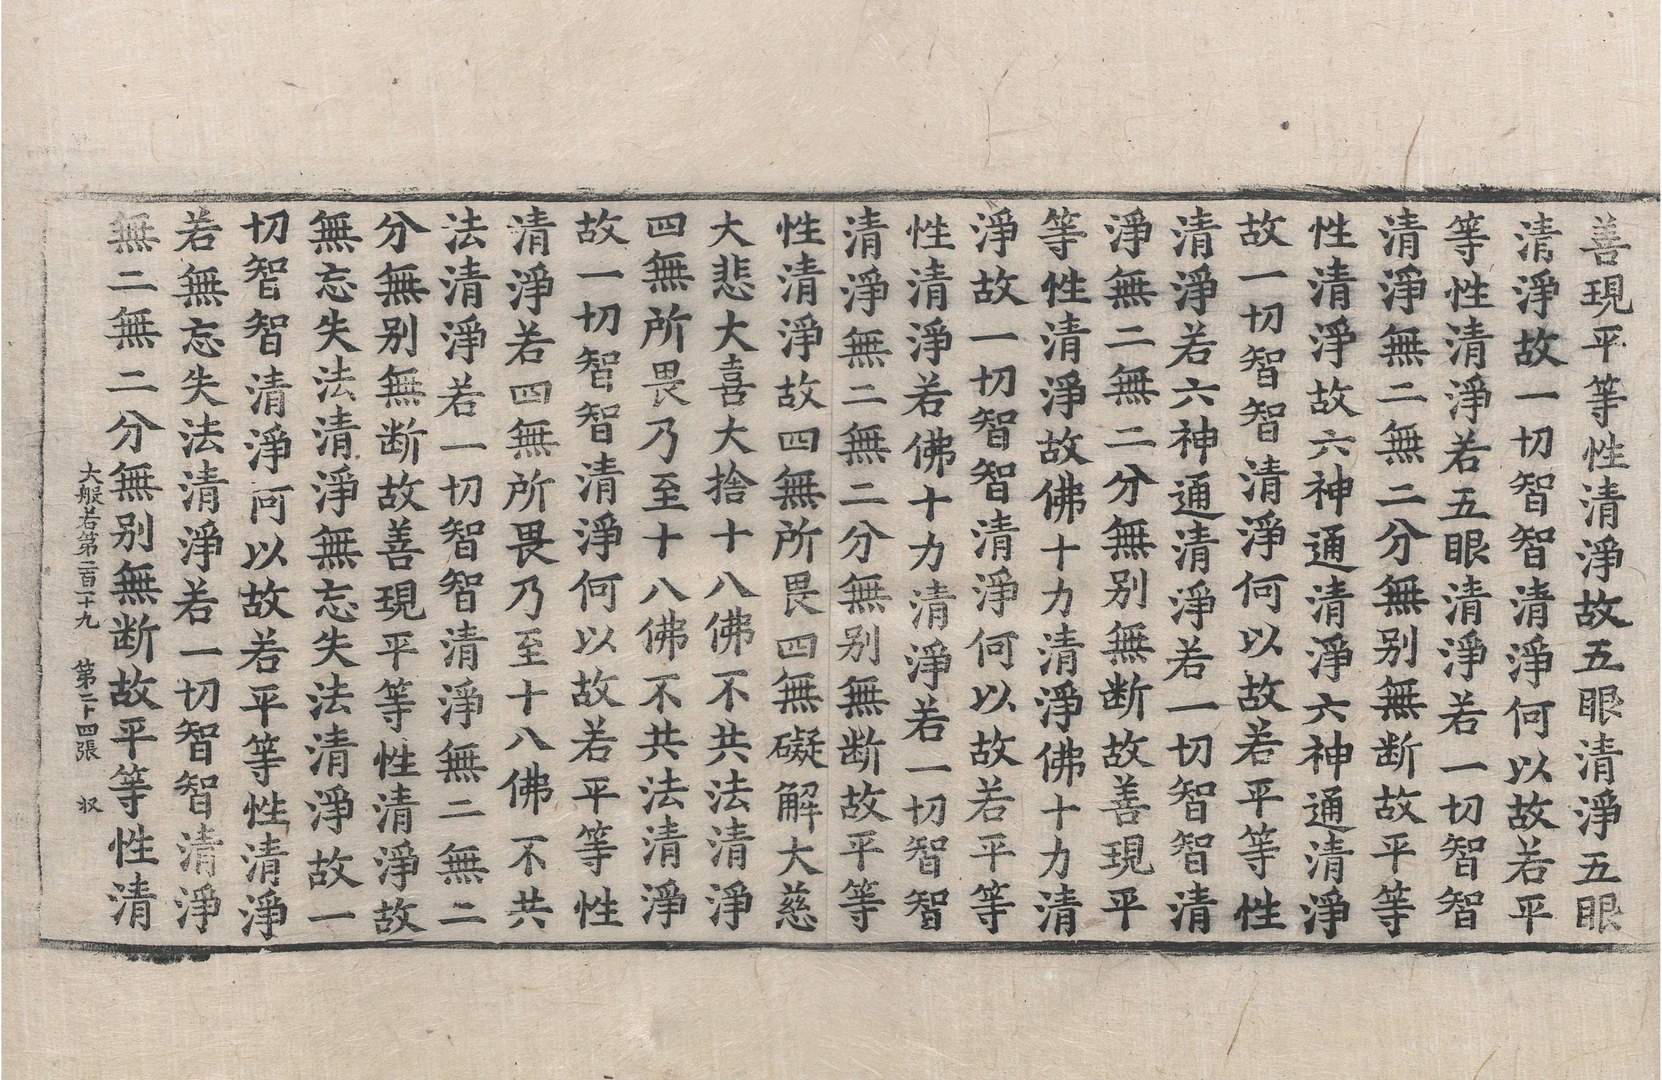 善現平等性清淨故五眼清淨五眼
清淨故一切智智清淨何以故若平
等性清淨若五眼清淨若一切智智
清淨無二無二分無别無断故平等
性清淨故六神通清淨六神通清淨
故一切智智清淨何以故若平等性
清淨若六神通清淨若一切智智清
淨無二無二分無别無断故善現平
等性清淨故佛十力清淨佛十力清
淨故一切智智清淨何以故若平等
性清淨若佛十力清淨若一切智智
清淨無二無二分無别無断故平等
性清淨故四無所畏四無礙解大慈
大悲大喜大捨十八佛不共法清淨
四無所畏乃至十八佛不共法清淨
故一切智智清淨何以故若平等性
清淨若四無所畏乃至十八佛不共
法清淨若一切智智清淨無二無二
分無别無断故善現平等性清淨故
無忘失法清淨無忘失法清淨故一
切智智清淨何以故若平等性清淨
若無忘失法清淨若一切智智清淨
無二無二分無别無断故平等性清
大般若第二百十九 第二十四張 㭍